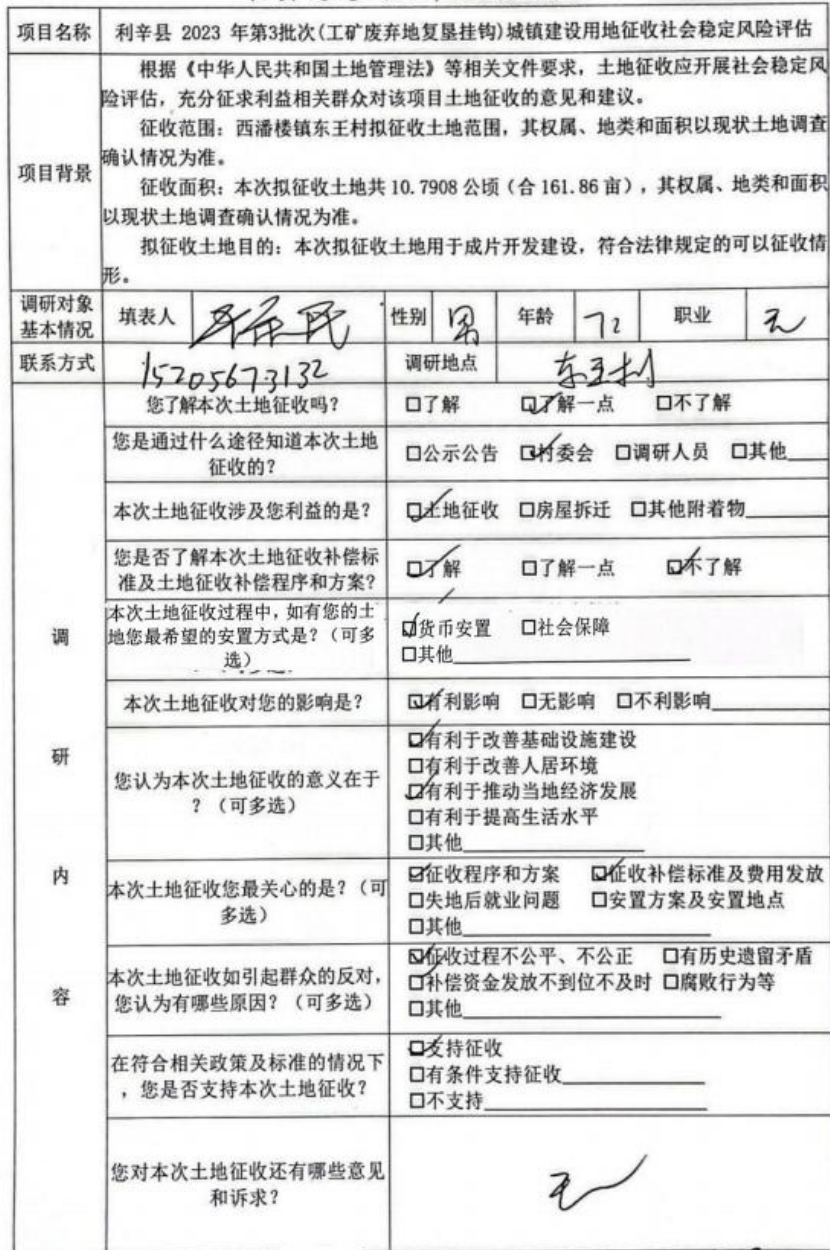 项目名称 利辛县 2023 年第3批次(工矿废弃地复垦挂钩)城镇建设用地征收社会稳定风险评估
项目背景
根据《中华人民共和国土地管理法》等相关文件要求，土地征收应开展社会稳定风
险评估，充分征求利益相关群众对该项目土地征收的意见和建议。
征收范围：西潘楼镇东王村拟征收土地范围，其权属、地类和面积以现状土地调查
确认情况为准。
征收面积：本次拟征收土地共 10.7908 公顷（合 161.86 亩），其权属、地类和面积
以现状土地调查确认情况为准。
拟征收土地目的：本次拟征收土地用于成片开发建设，符合法律规定的可以征收情
形。
调研对象
基本情况
填表人 性别 男 年龄 72 职业 无
联系方式 15205673132 调研地点 东王村
调研内容
您了解本次土地征收吗？
□了解 □了解一点 □不了解
您是通过什么途径知道本次土地
征收的？
□公示公告 □村委会 □调研人员 □其他
本次土地征收涉及您利益的是？
□土地征收 □房屋拆迁 □其他附着物
您是否了解本次土地征收补偿标
准及土地征收补偿程序和方案？
□了解 □了解一点 □不了解
本次土地征收过程中，如有您的土
地您最希望的安置方式是？（可多
选）
□货币安置 □社会保障
□其他
本次土地征收对您的影响是？
□有利影响 □无影响 □不利影响
您认为本次土地征收的意义在于
？（可多选）
□有利于改善基础设施建设
□有利于改善人居环境
□有利于推动当地经济发展
□有利于提高生活水平
□其他
本次土地征收您最关心的是？（可
多选）
□征收程序和方案 □征收补偿标准及费用发放
□失地后就业问题 □安置方案及安置地点
□其他
本次土地征收如引起群众的反对，
您认为有哪些原因？（可多选）
□征收过程不公平、不公正 □有历史遗留矛盾
□补偿资金发放不到位不及时 □腐败行为等
□其他
在符合相关政策及标准的情况下
，您是否支持本次土地征收？
□支持征收
□有条件支持征收
□不支持
您对本次土地征收还有哪些意见
和诉求？
无